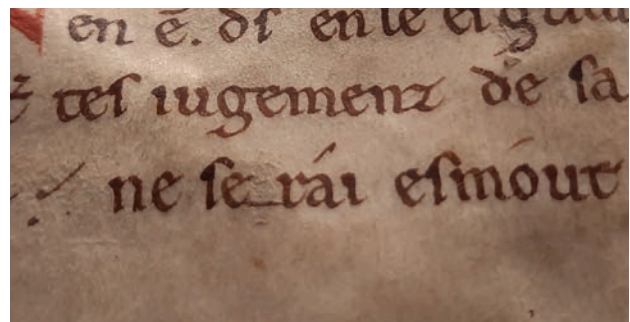 en ē. dſ en le
⁊ teſ iugemenz de ſa
ne ſe rái eſmout